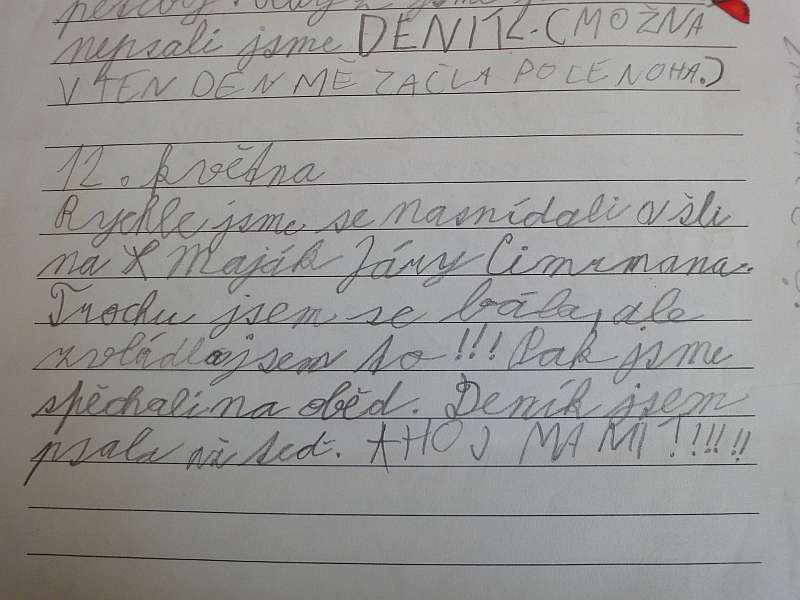 nepsali jsme DENÍK. (MOŽNA
V TEN DEN MĚ ZAČLA POLE NOHA.)
12. května
Rychle jsme se nasnídali a šli
na Maják Járy Cimrmana.
Trochu jsem se bála, ale
zvládla jsem to!!! Pak jsme
spěchali na oběd. Deník jsem
psala až teď. AHOJ MAMI!!!!!!